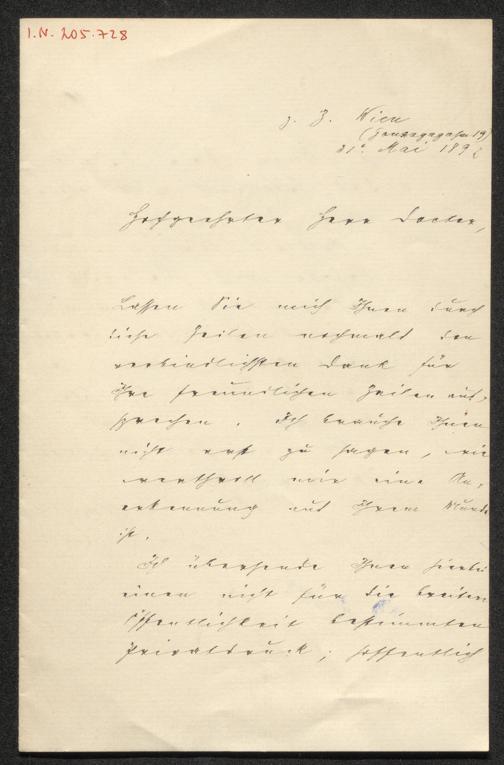 I.N. 205.728
z. Z. Wien
(Gonzagagasse 19)
31t. Mai 189
Hochgeehrter Herr Doctor,
Lassen Sie mich Ihnen durch
diese Zeilen nochmals den
verbindlichsten Dank für
Ihre freundlichen Zeilen aus-
sprechen. Ich brauche Ihnen
nicht erst zu sagen, wie
werthvoll mir eine An-
erkennung aus Ihrem Munde
ist.
Ich übersende Ihnen hierbei
einen nicht für die breitere
Öffentlichkeit bestimmten
Privatdruck; hoffentlich